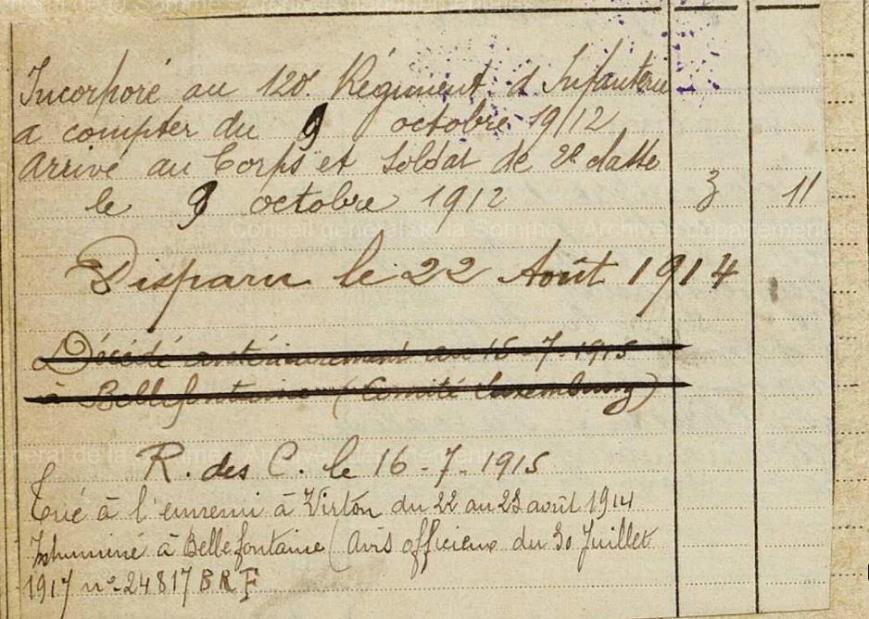 Incorporé au 120e Régiment d'Infanterie
a compter du 9 octobre 1912
Arrivé au Corps et Soldat de 2e classe
le 9 octobre 1912 3 11
Disparu le 22 Août 1914
Décédé antérieurement au 16-7-1915
à Bellefontaine (Comité Luxembourg)
R. des C. le 16-7-1915
Tué à l'ennemi à Virton du 22 au 23 août 1914
Inhumé à Bellefontaine (Avis officieux du 30 Juillet
1917 n°-24817 BRF